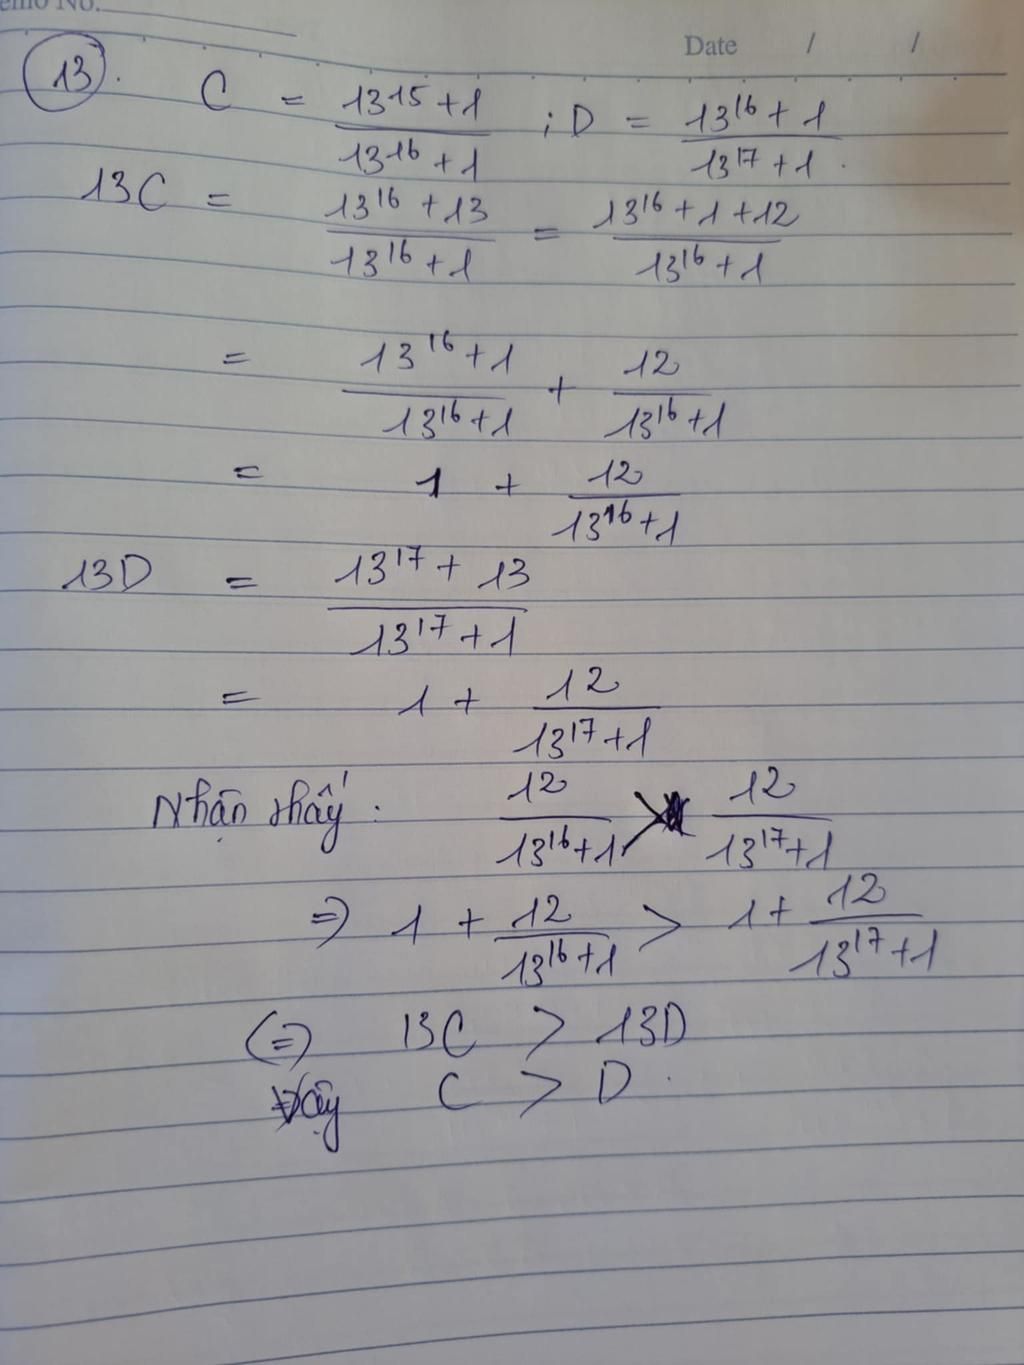 emo No.
Date / /
13. C = \frac{13^{15}+1}{13^{16}+1} ; D = \frac{13^{16}+1}{13^{17}+1}.
13C = \frac{13^{16}+13}{13^{16}+1} = \frac{13^{16}+1+12}{13^{16}+1}
= \frac{13^{16}+1}{13^{16}+1} + \frac{12}{13^{16}+1}
= 1 + \frac{12}{13^{16}+1}
13D = \frac{13^{17}+13}{13^{17}+1}
= 1 + \frac{12}{13^{17}+1}
Nhận thấy : \frac{12}{13^{16}+1} > \frac{12}{13^{17}+1}
=> 1 + \frac{12}{13^{16}+1} > 1 + \frac{12}{13^{17}+1}
(=) 13C > 13D
Vậy C > D.